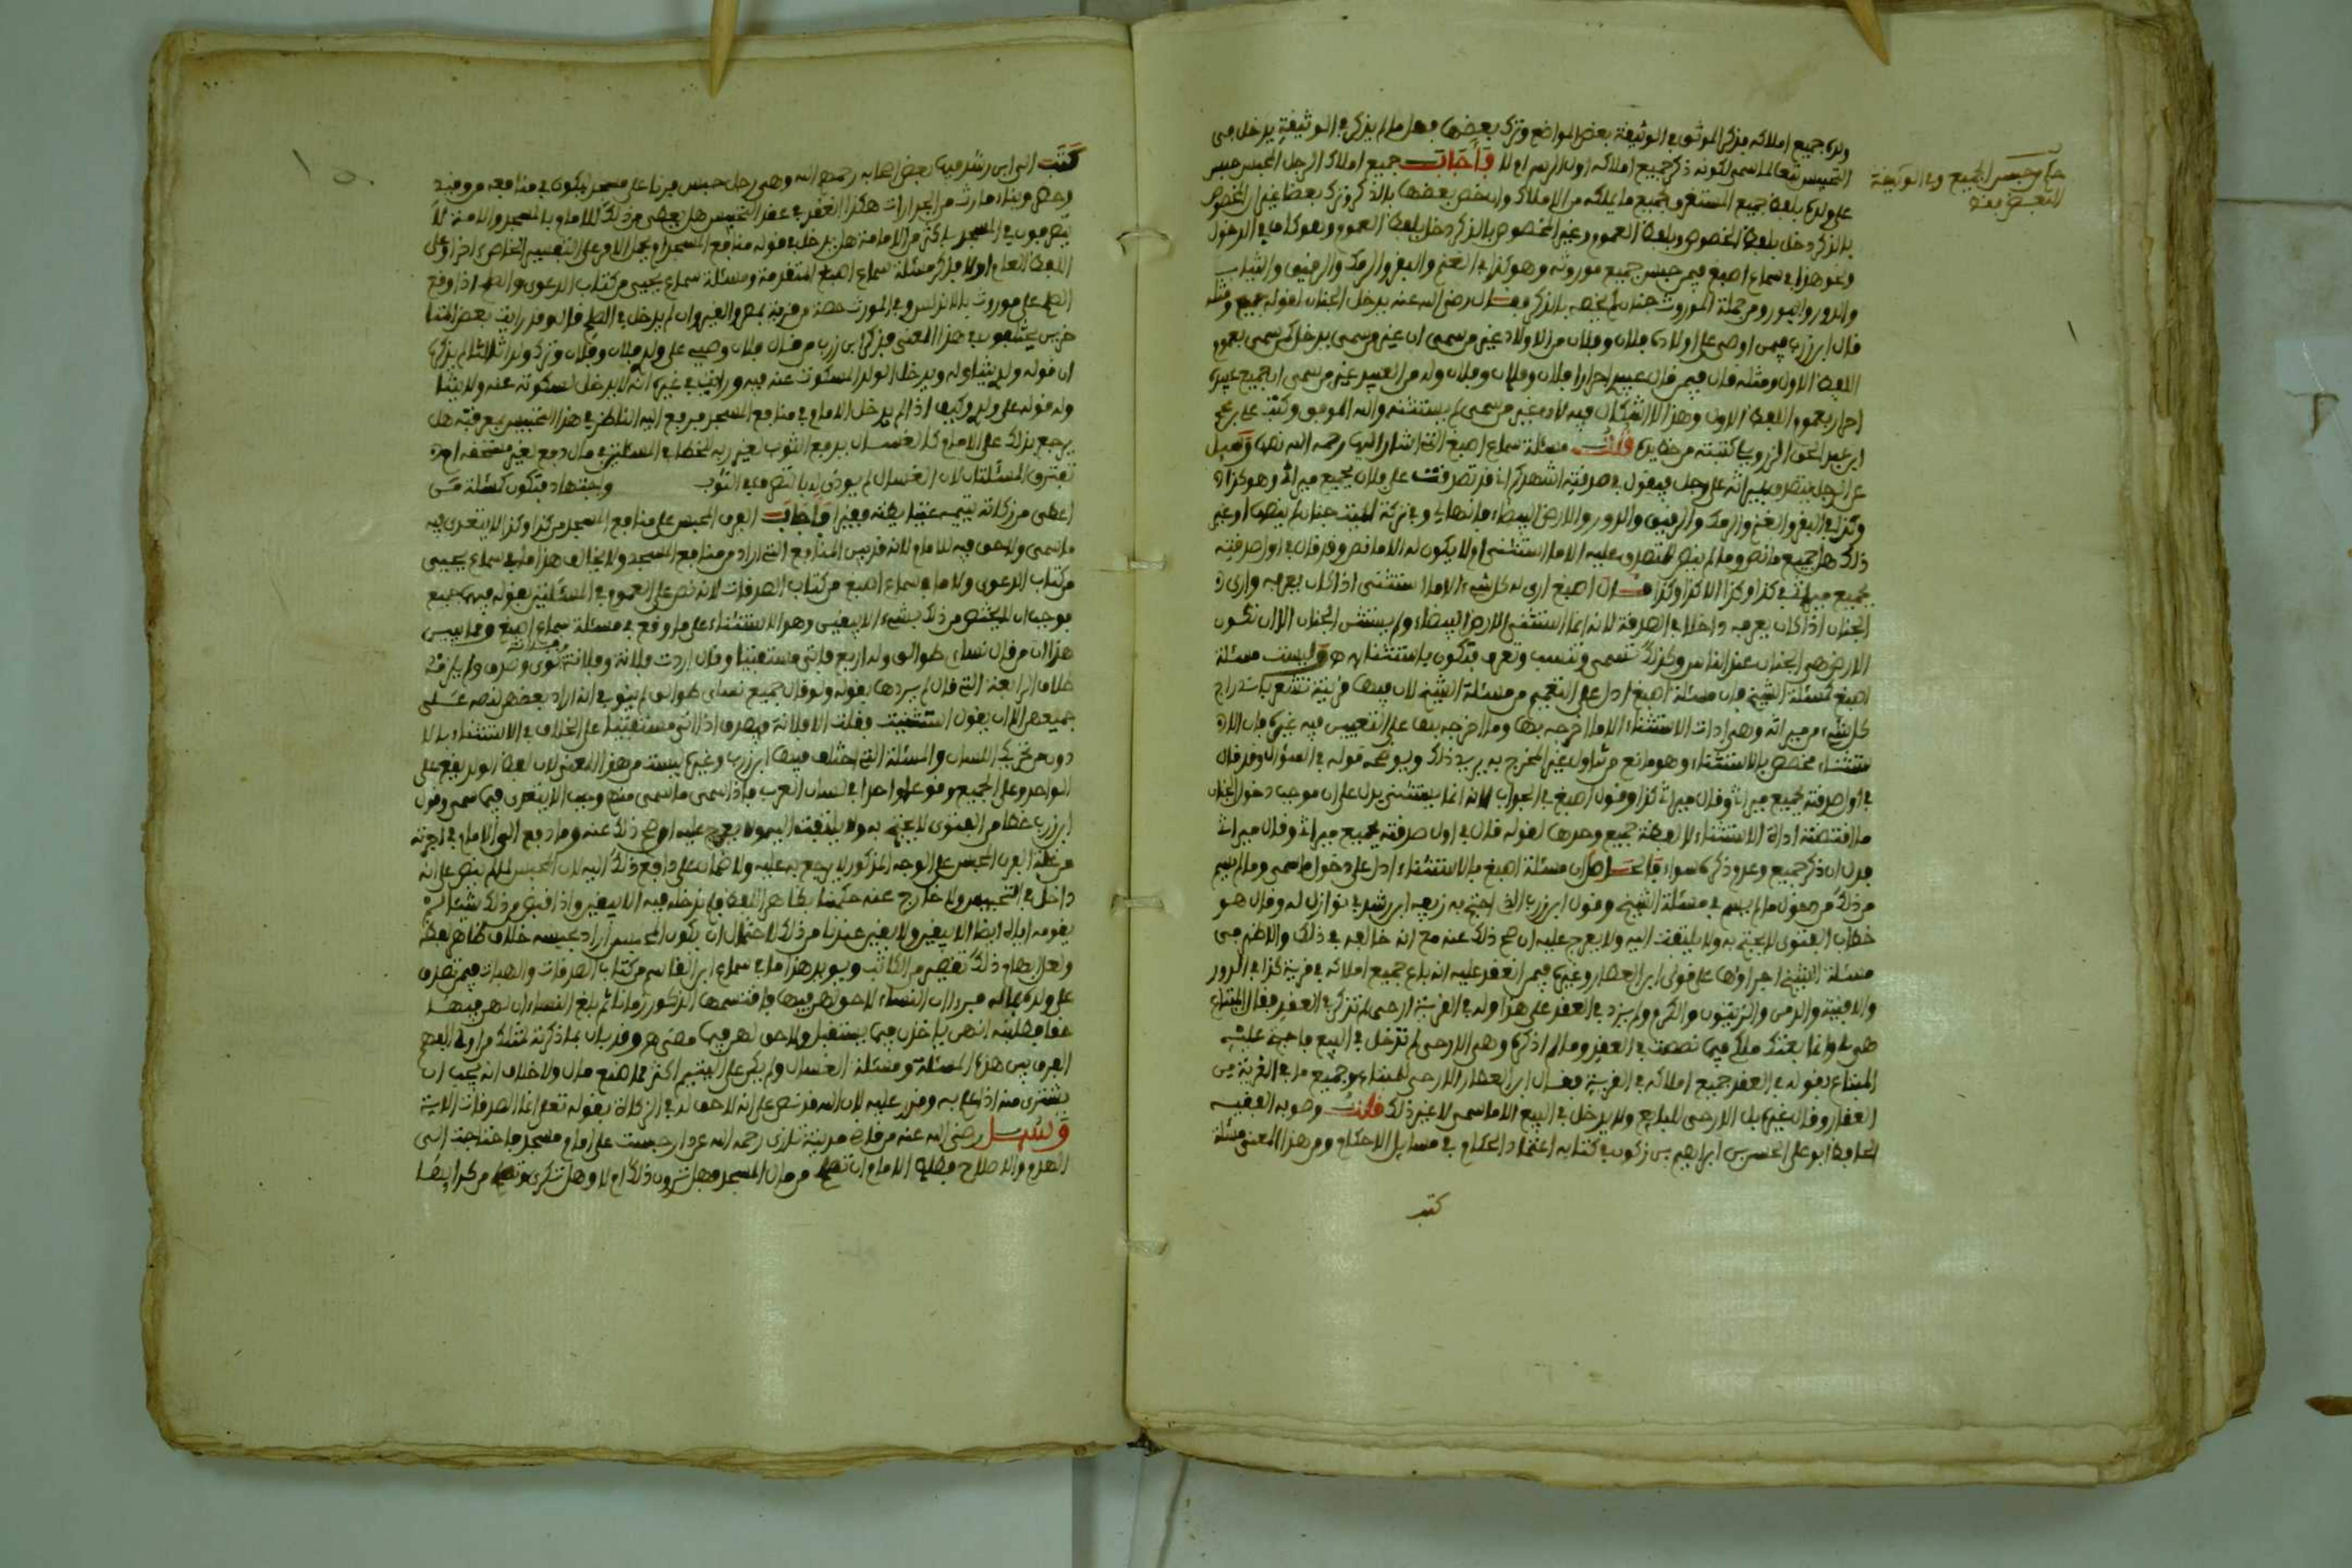 ولده جميع املاكه فذكر الموثق في الوثيقة بعض المواضع وترك بعضها فهل ما لم يذكر في الوثيقة يدخل في
التحبيس تبعا لما سمى لكونه ذكر جميع املاكه اول الرسم او لا فأجاب جميع املاك الرجل المحبس حبس
على ولده بلفظ جميع المستغرق لجميع ما يملكه من الاملاك وان خص بعضها بالذكر وترك بعضا غير ان المخصوص
بالذكر دخل بلفظ الخصوص وبلفظ العموم وغير المخصوص بالذكر دخل بلفظ العموم وهو كاف في الدخول
ونحو هذا في سماع اصبغ فيمن حبس جميع موروثه وهو كذا في الغنم والبقر والرمك والرقيق والثياب
والدور والبور ومن جملة الموروث جنان لم يخصه بالذكر فقال رضي الله عنه يدخل الجنان لقوله جميع ومثله
قال ابن زرب فيمن اوصى على اولاده فلان وفلان من الاولاد غير من سمى ان غير من سمى يدخل كمن سمى بعموم
اللفظ الاول ومثله قال فيمن قال عبيدي احرار فلان وفلان وفلان وله من العبيد غير من سمى ان جميع عبيده
احرار بعموم اللفظ الاول وهذا لا اشكال فيه لانه غير من سمى لم يستثنه والله الموفق وكتب علي بن محمد
ابن عبد الحق الزرويلي كتبته من خط يده قلت مسئلة سماع اصبغ التي اشار اليها رحمه الله نصها وسئل
عن الرجل يتصدق بميراثه على رجل فيقول في صدقته اشهدكم اني قد تصدقت على فلان بجميع ميراثي وهو كذا
وكذا في البقر والغنم والرمك والرقيق والدور والارض البيضاء فانها لي وفي تركة الميت جنان لم ينص او غير
ذلك هل جميع ما نص وما لم ينص للمتصدق عليه الا ما استثنى او لا يكون له الا ما نص وقد قال في اول صدقته
بجميع ميراثي في كذا وكذا الا كذا وكذا فقال اصبغ ارى له كل شيء الا ما استثنى اذا كان يعرفه وارى
الجنان اذا كان يعرفه داخلا في الصدقة لانه انما استثنى الارض البيضاء ولم يستثن الجنان الا ان تكون
الارض هي الجنان عند الناس وكذلك تسمى وتنسب وتعرف فتكون باستثنائه هو وليست مسئلة
اصبغ كمسئلة الشيخ فان مسئلة اصبغ ادل على التعميم من مسئلة الشيخ لان فيها قرينة تشعر باندراج
كل شيء من ميراثه وهي ادات الاستثناء الا ما اخرجه بها وما اخرجه بها على التعيين فيه غيره فان الا
ستثناء مخصص بالاستثناء وهو مانع من تناول غير المخرج به يريد ذلك ويوضحه قوله في السؤال وقد قال
في اول صدقته بجميع ميراثي وقال ميراثي كذا وقول اصبغ في الجواب لانه انما يستثنى يدل على ان موجب دخول الجنان
ما اقتضته اداة الاستثناء لا لفظة جميع وحدها لقوله قال في اول صدقته بجميع ميراثي وقال ميراثي
فدل ان ذكر جميع وعدم ذكره سواء فالحاصل ان مسئلة اصبغ بالاستثناء ادل على دخول ما سمى وما لم يسم
من ذلك من دخول ما لم يسم في مسئلة الشيخ وقول ابن زرب الذي احتج به زيفه ابن رشد في نوازل له وقال هو
خطأ في الفتوى لا يحتج به ولا يلتفت اليه ولا يعرج عليه ان صح ذلك عنه مع انه خالفه في ذلك والاظهر في
مسئلة الشيخ اجراؤها على قولي ابن العطار وغيره فيمن انعقد عليه انه باع جميع املاكه في قرية كذا في الدور
والافنية والدمن والزيتون والكرم ولم يزد في العقد على هذا وله في القرية ارحى لم تذكر في العقد فقال المبتاع
هي لي وانما بعتك ملكي فيما نصصت في العقد وما لم اذكره وهي الارحى لم تدخل في البيع فاحتج عليه
المبتاع بقوله في العقد جميع املاكه في القرية فقال ابن العطار الارحى للمبتاع وجميع ما في القرية من
العقار وقال غيره بل الارحى للبايع ولا يدخل في البيع الا ما سمى لا غير ذلك قلت وصوبه الفقيه
الحافظ ابو علي الحسن بن ابراهيم بن زكون في كتابه اعتماد الحكام في مسايل الاحكام ومن هذا المعنى مسئلة
كتب
حكم تحبيس الجميع وفي الوثيقة
البعض معينا
كتب الى ابن رشد فيها بعض اصحابه رحمهم الله وهي رجل حبس فرنا على مسجد ليكون في منافعه من وقيد
وحصر وبناء ما رث من الجدارات هكذا انعقد في عقد التحبيس هل يعطى من ذلك للامام بالمسجد والامة لا
يتصرفون في المسجد باكثر من الامامة هل يدخل في قوله منافع المسجد او يحمل الامر على التفسير الخاص اخرا وعلى
اللفظ العام اولا فذكر مسئلة سماع اصبغ المتقدمة ومسئلة سماع يحيى من كتاب الدعوى والصلح اذا وقع
الصلح على موروث بالاندلس وفي المورث حصة من قرية بمصر والقيروان لم يدخل في الصلح قال وقد رايت بعض المتا
خرين يختلفون في هذا المعنى فذكر ابن زرب من قال فلان وصيي على ولدي فلان وفلان وترك ولدا ثالثا لم يذكره
ان قوله ولدي يتناوله ويدخل الولد المسكوت عنه فيه ورايت في غيره انه لا يدخل لسكوته عنه ولا يتنا
وله قوله على ولدي وكيف اذا لم يدخل الامام في منافع المسجد فدفع اليه الناظر في هذا التحبيس بمعرفته هل
يرجع بذلك على الامام كالغسال يدفع الثوب لغير ربه للخطإ في المسئلتين في مال دفع لغير مستحقه ام
تفترق المسئلتان لان الغسال لم يوذن له بالتصرف في الثوب واجتهاد فتكون كمسئلة من
اعطى من زكاته يتيمه غنيا يظنه فقيرا فأجاب الفرن المحبس على منافع المسجد من كذا وكذا لا يتعدى فيه
ما سمى ولا حق فيه للامام لانه قد بين المنافع التي اراد من منافع المسجد ولا يخالف هذا ما في سماع يحيى
من كتاب الدعوى ولا ما في سماع اصبغ من كتاب الصدقات لانه نص على العموم في المسئلتين بقوله فيهما جميع
فوجب ان لا يختص من ذلك بشيء الا بيقين وهو الاستثناء على ما وقع في مسئلة سماع اصبغ ومما يبين
هذا ان من قال نساءي طوالق وله اربع فاتى مستفتيا وقال اردت فلانة وفلانة وفلانة نوي وصدق ولم يلزمه
طلاق الرابعة التي قال لم يردها بقوله ولو قال جميع نساءي طوالق لم ينو في انه اراد بعضهن لنصه على
جميعهن الا ان يقول استثنيت وقلت الا فلانة فيصدق اذا اتى مستفتيا على الخلاف في الاستثناء بالا
دون تحريك اللسان والمسئلة التي اختلف فيها ابن زرب وغيره ليست من هذا المعنى لان لفظ الولد يقع على
الواحد وعلى الجميع وقوعا واحدا في لسان العرب فاذا سمى ما سمى منهم وجب الا يتعدى فيما سمى وقول
ابن زرب خطأ من الفتوى لا يحتج به ولا يلتفت اليه ولا يعرج عليه ان صح ذلك عنه وما دفع الى الامام في اجرته
من غلة الفرن المحبس على الوجه المذكور لا يرجع به عليه ولا ضمان على دافع ذلك اليه لان المحبس لما لم ينص على انه
داخل في التحبيس ولا خارج عنه حكمنا بظاهر اللفظ فلم ندخله فيه الا بيقين واذا قبض من ذلك شيئا لم
نغرمه اياه ايضا الا بيقين ولا يقين عندنا من ذلك لاحتمال ان يكون المحبس اراد بحبسه خلاف ظاهر لفظه
ولعل ابهام ذلك تقصير من الكاتب ويويد هذا ما في سماع ابن القاسم من كتاب الصدقات والهبات فيمن تصدق
على ولده بماله فيرون ان النساء لا حق لهن فيها فاقتسمها الذكور زمانا ثم بلغ النساء ان لهن فيها
حقا فطلبنه انهن ياخذن فيما يستقبل ولا حق لهن فيما مضى هو وقد بان بما ذكرته لك من اوله الصحيح
الفرق بين هذه المسئلة ومسئلة الغسال ولم يكن على اليتيم اكثر مما صنع قال ولا خلاف انه يجب ان
يشترى منه اذا علم به وقدر عليه لان الله قد نص على انه لا حق له في الزكاة بقوله تعلى انما الصدقات الاية
وسئل رضي الله عنه من قاضي مدينة تازى رحمه الله عن دار حبست على امام مسجد فاحتاجت الى
الهدم والاصلاح فطلب الامام ان تصلح من مال المسجد فهل ترون ذلك ام لا وهل تكرى وتصلح من كرائها